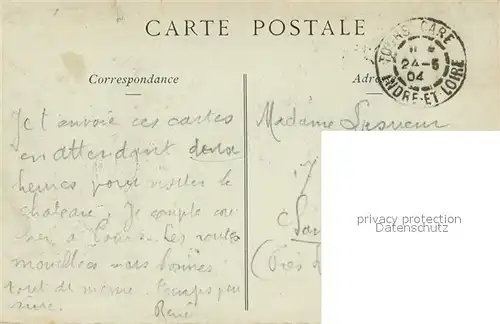 CARTE POSTALE
TOURS GARE
24-5
04
INDRE-ET-LOIRE
Correspondance
Adre
Je t'envoie ces cartes
en attendant deux
heures pour visiter le
château. Je compte cou
cher à Les routes
mouillées mais bonnes
tout de même. Temps peu
René
Madame Lesueur
(Près
privacy protection
Adressschutz